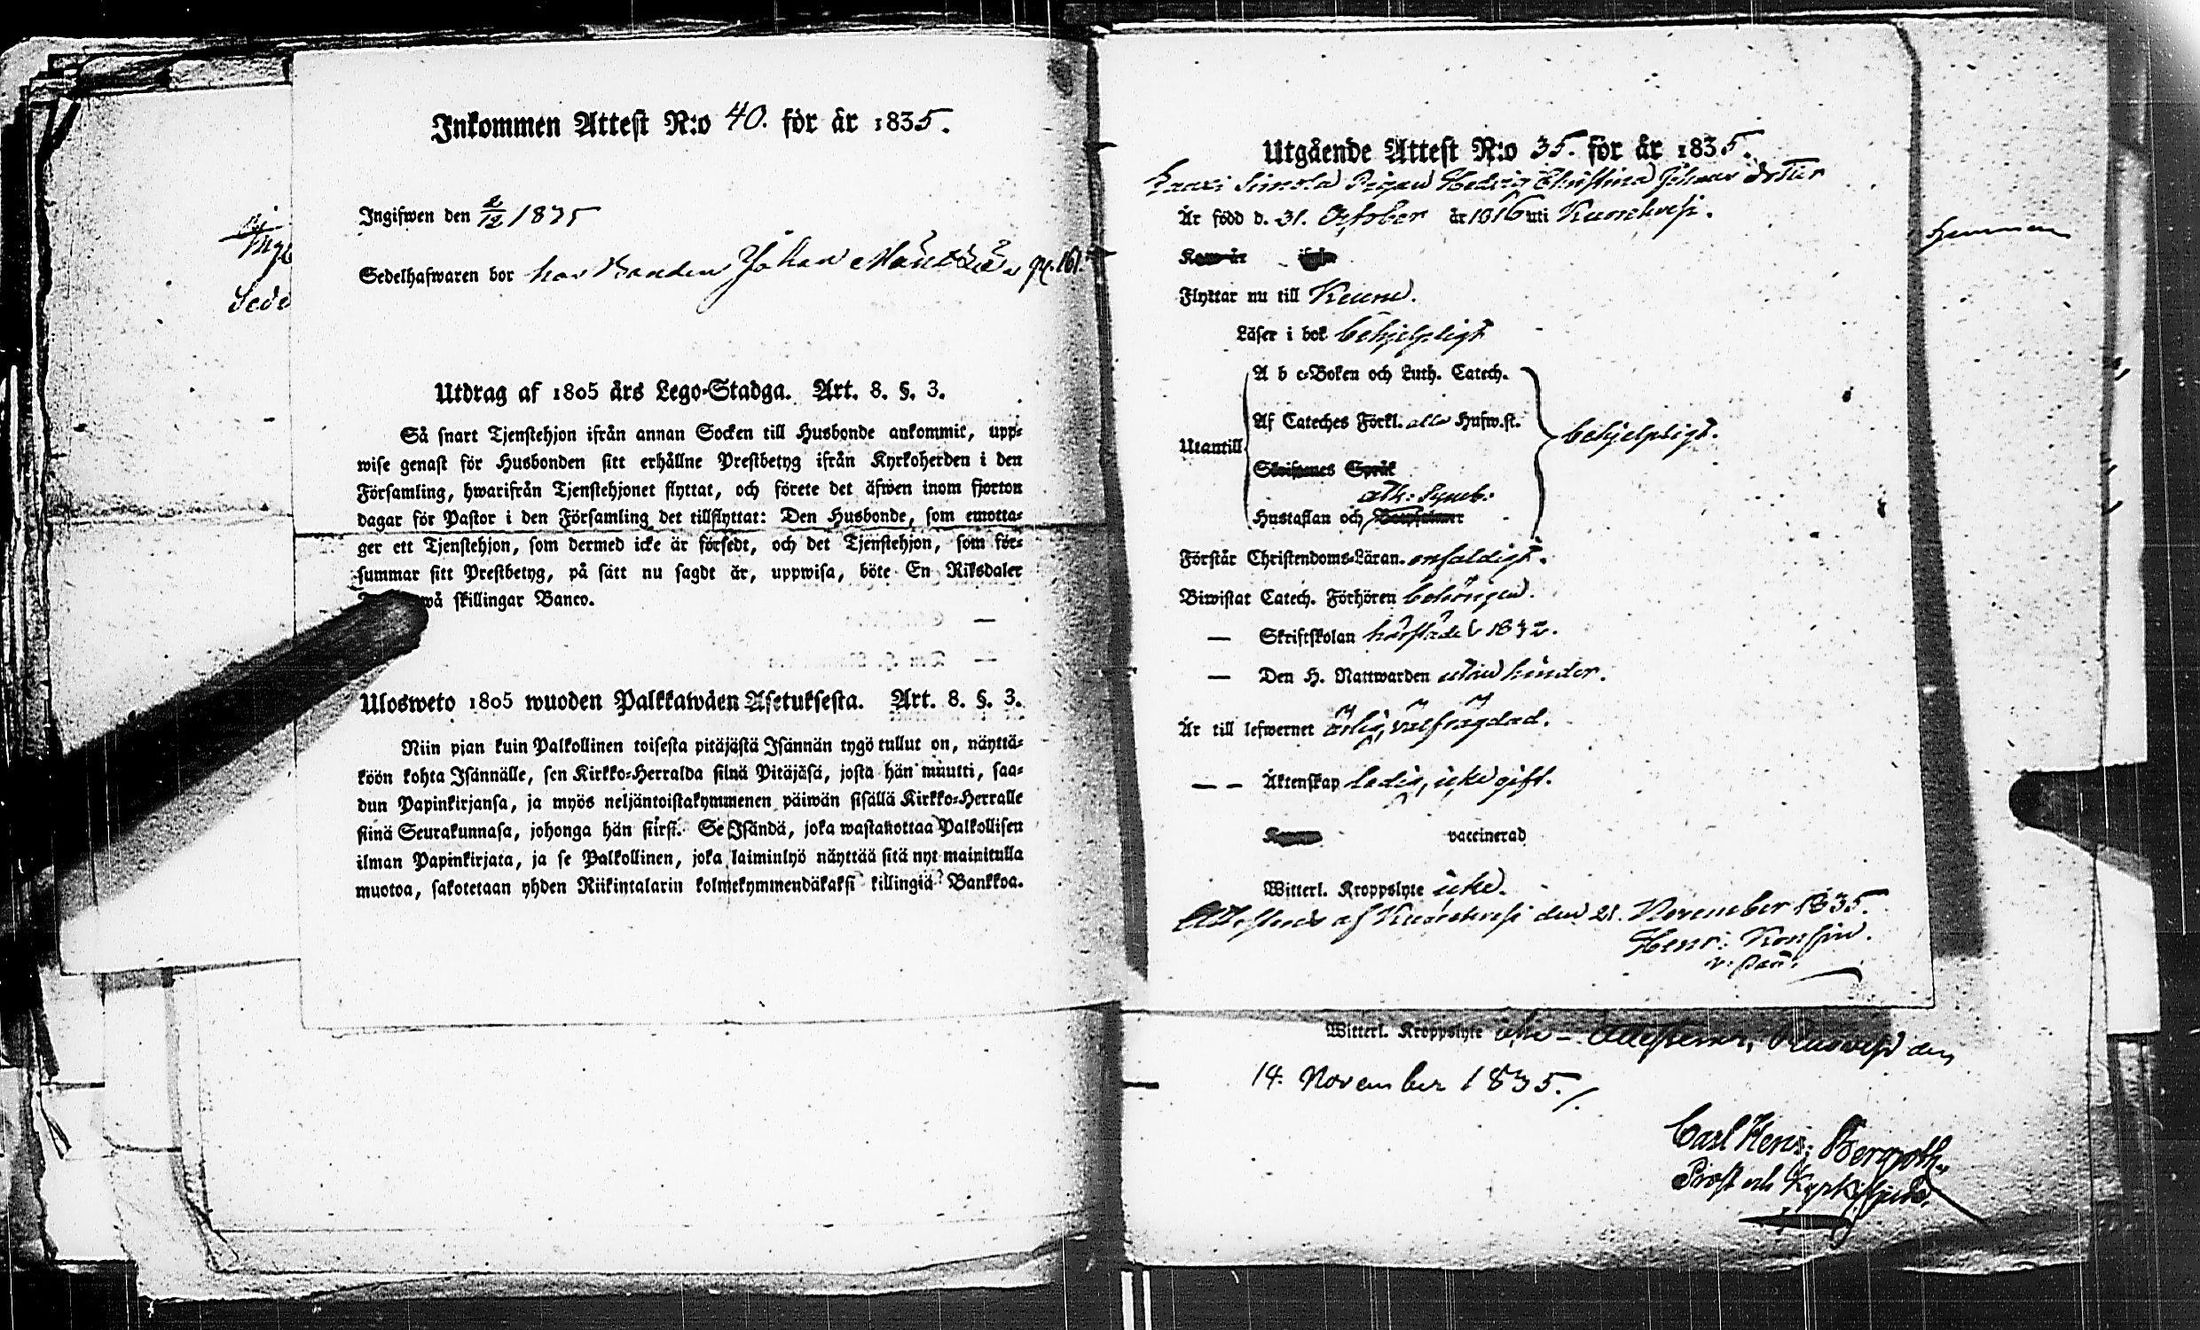 Inkommen Attest N:o 40. för år 1835.
Ingifwen den 2/12 1835
Sedelhafwaren bor hos Bonden Johan
Utdrag af 1805 års Lego-Stadga. Art. 8. §. 3.
Så snart Tjenstehjon ifrån annan Socken till Husbonde ankommit, upp-
wise genast för Husbonden sitt erhållne Prestbetyg ifrån Kyrkoherden i den
Församling, hwarifrån Tjenstehjonet flyttat, och förete det äfwen inom fjorton
dagar för Pastor i den Församling det tillflyttat: Den Husbonde, som emotta-
ger ett Tjenstehjon, som dermed icke är försedt, och det Tjenstehjon, som för-
summar sitt Prestbetyg, på sätt nu sagdt är, uppwisa, böte En Riksdaler
skillingar Banco.
Ulosweto 1805 wuoden Palkkawäen Asetuksesta. Art. 8. §. 3.
Niin pian kuin Palkollinen toisesta pitäjästä Isännän tygö tullut on, näyttä-
köön kohta Isännälle, sen Kirkko-Herralda siinä Pitäjäsä, josta hän muutti, saa-
dun Papinkirjansa, ja myös neljäntoistakymmenen päiwän sisällä Kirkko-Herralle
siinä Seurakunnasa, johonga hän siirsi. Se Isändä, joka wastanottaa Palkollisen
ilman Papinkirjata, ja se Palkollinen, joka laiminlyö näyttää sitä nyt mainitulla
muotoa, sakotetaan yhden Riikintalarin kolmekymmendäkaksi killingiä Bankkoa.
Utgående Attest N:o 35. för år 1835.
Pigan Hedvig Christina Johans dotter
Är född d. 31. October år 1816 uti
Flyttar nu till
Läser i bok behjelpligt
A b c-Boken och Luth. Catech.
Utantill Af Cateches Förkl. alla Hufw.st. behjelpligt.
Skriftenes Språk
ath: Symb:
Hustaflan och
Förstår Christendoms-Läran. enfaldigt.
Biwistat Catech. Förhören behörigen.
— Skriftskolan härstädes 1832.
— Den H. Nattwarden utan hinder.
Är till lefwernet ärlig, välfrägdad.
— — Äktenskap ledig, icke gift.
vaccinerad
Witterl. Kroppslyte icke.
Attesteras af den 21. November 1835.
Henr:
v. Past:
Witterl. Kroppslyte icke – Attesterar, den
14. November 1835./.
Carl Henr: Bergroth.
Prost och Kyrkoherde.